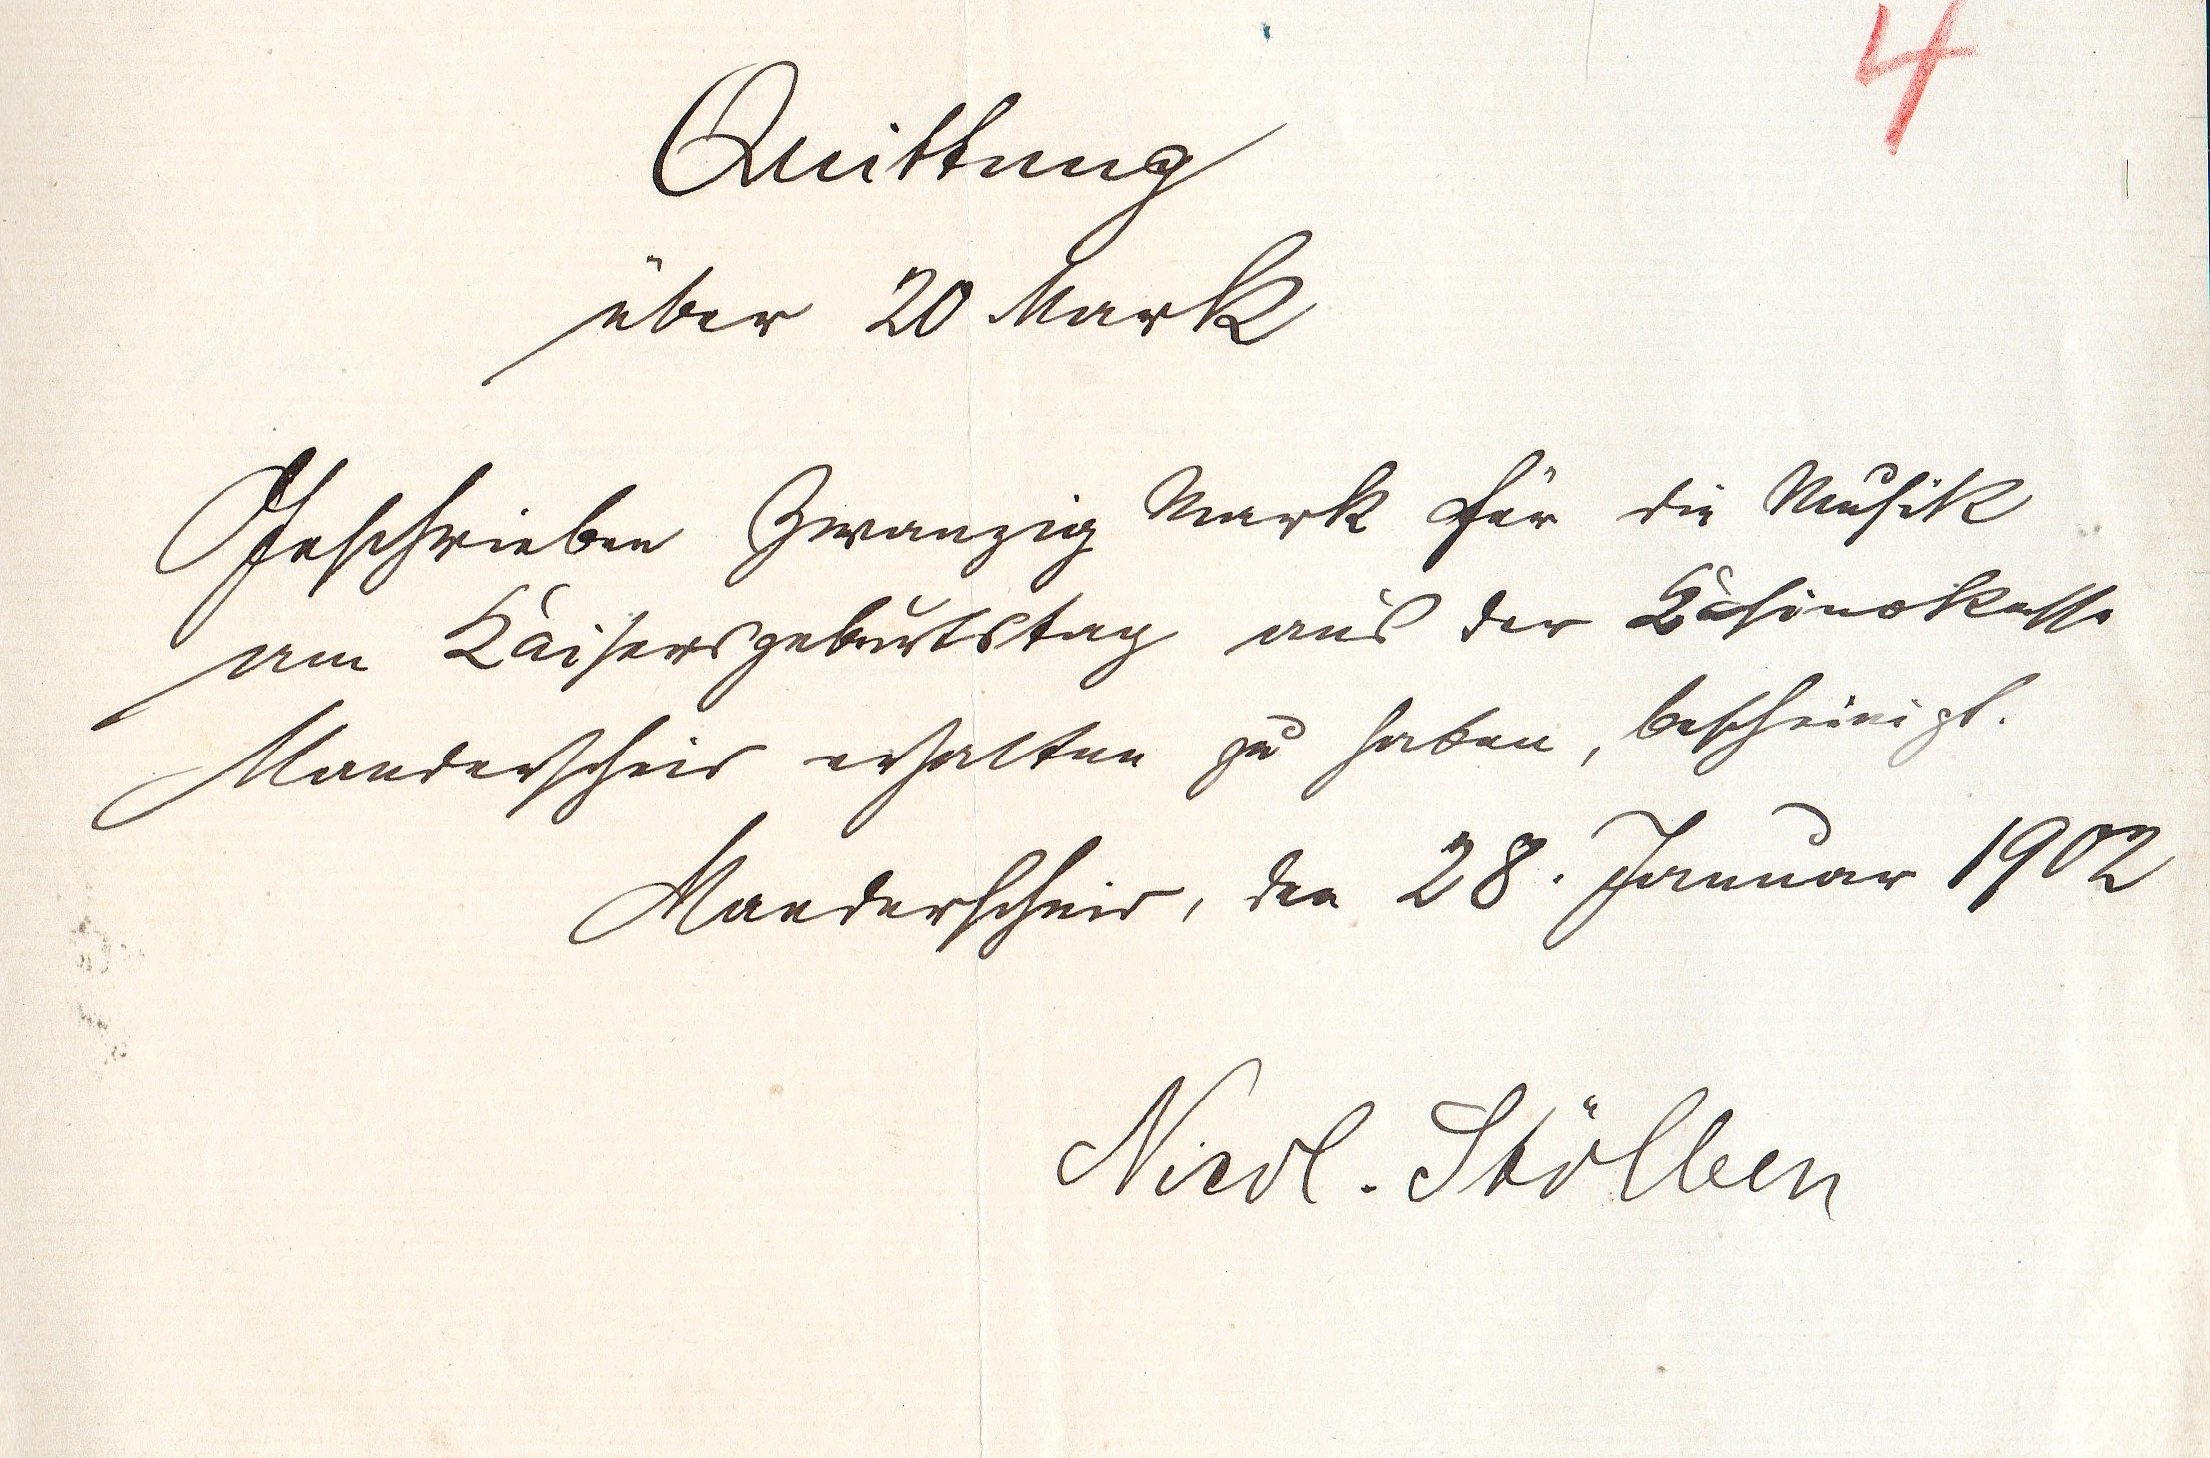 4
Quittung
über 20 Mark
Geschrieben Zwanzig Mark für die Musik
am Kaisersgeburtstag aus der Kasinokasse
Manderscheid erhalten zu haben, bescheinigt.
Manderscheid, den 28. Januar 1902
Nicol. Stölben